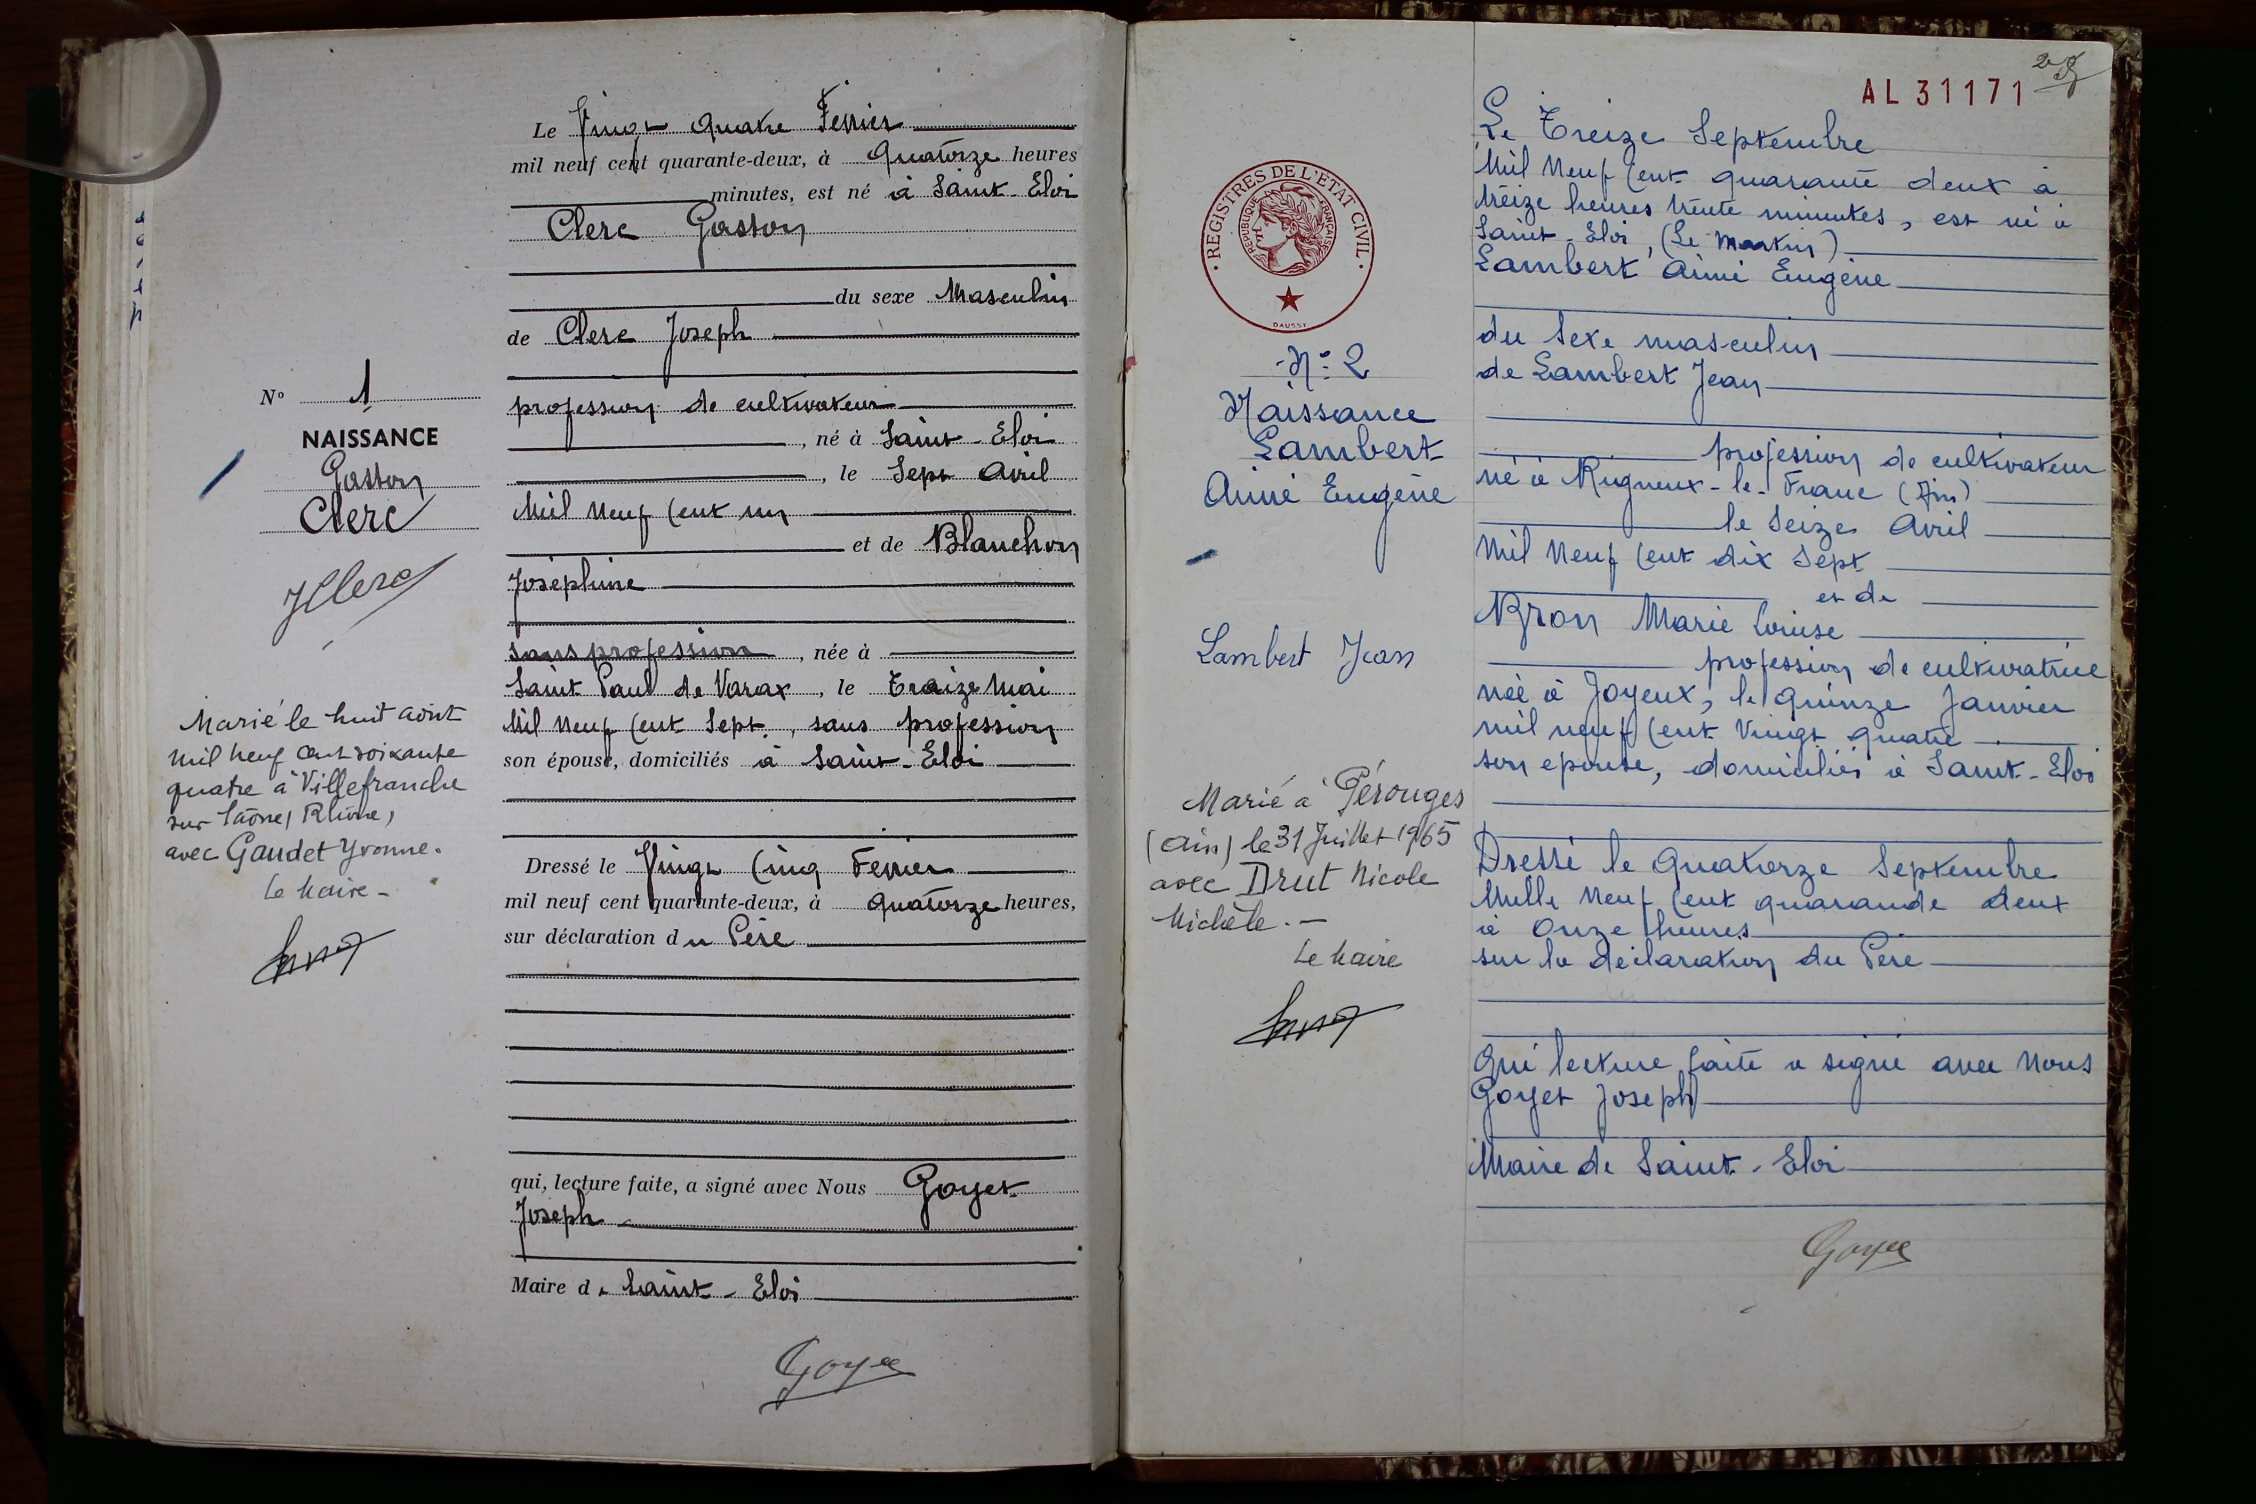 Le Vingt quatre Février
mil neuf cent quarante-deux, à quatorze heures
minutes, est né à Saint-Eloi
Clerc Gaston
du sexe Masculin
de Clerc Joseph
profession de cultivateur
, né à Saint-Eloi
, le Sept Avril
Mil Neuf Cent un
et de Blanchon
Joséphine
sans profession, née à
Saint Paul de Varax, le Treize Mai
Mil Neuf Cent Sept, sans profession
son épouse, domiciliés à Saint-Eloi
Dressé le Vingt Cinq Février
mil neuf cent quarante-deux, à quatorze heures,
sur déclaration du Père
qui, lecture faite, a signé avec Nous Goyet
Joseph
Maire de Saint-Eloi
Goyet
No 1
NAISSANCE
Gaston
Clerc
JClerc
Marié le huit août
mil neuf cent soixante
quatre à Villefranche
sur Saône, Rhône,
avec Gaudet Yvonne.
Le Maire -
AL 31171
REGISTRES DE L'ETAT CIVIL
REPUBLIQUE FRANÇAISE
DAUSSY
N° 2
Naissance
Lambert
Aimé Eugène
Lambert Jean
Marié à Pérouges
(Ain) le 31 Juillet 1965
avec Drut Nicole
Michèle. -
Le Maire
Le Treize Septembre
Mil Neuf Cent quarante deux à
treize heures trente minutes, est né à
Saint-Eloi, (Le Martin)
Lambert Aimé Eugène
du sexe masculin
de Lambert Jean
profession de cultivateur
né à Rigneux-le-Franc (Ain)
le Seize Avril
Mil Neuf Cent dix Sept
et de
Bron Marie Louise
profession de cultivatrice
née à Joyeux, le quinze Janvier
mil neuf Cent Vingt quatre
son épouse, domiciliés à Saint-Eloi
Dressé le Quatorze Septembre
Mille Neuf Cent quarande deux
à Onze heures
sur la déclaration du Père
qui lecture faite a signé avec Nous
Goyet Joseph
Maire de Saint-Eloi
Goyet